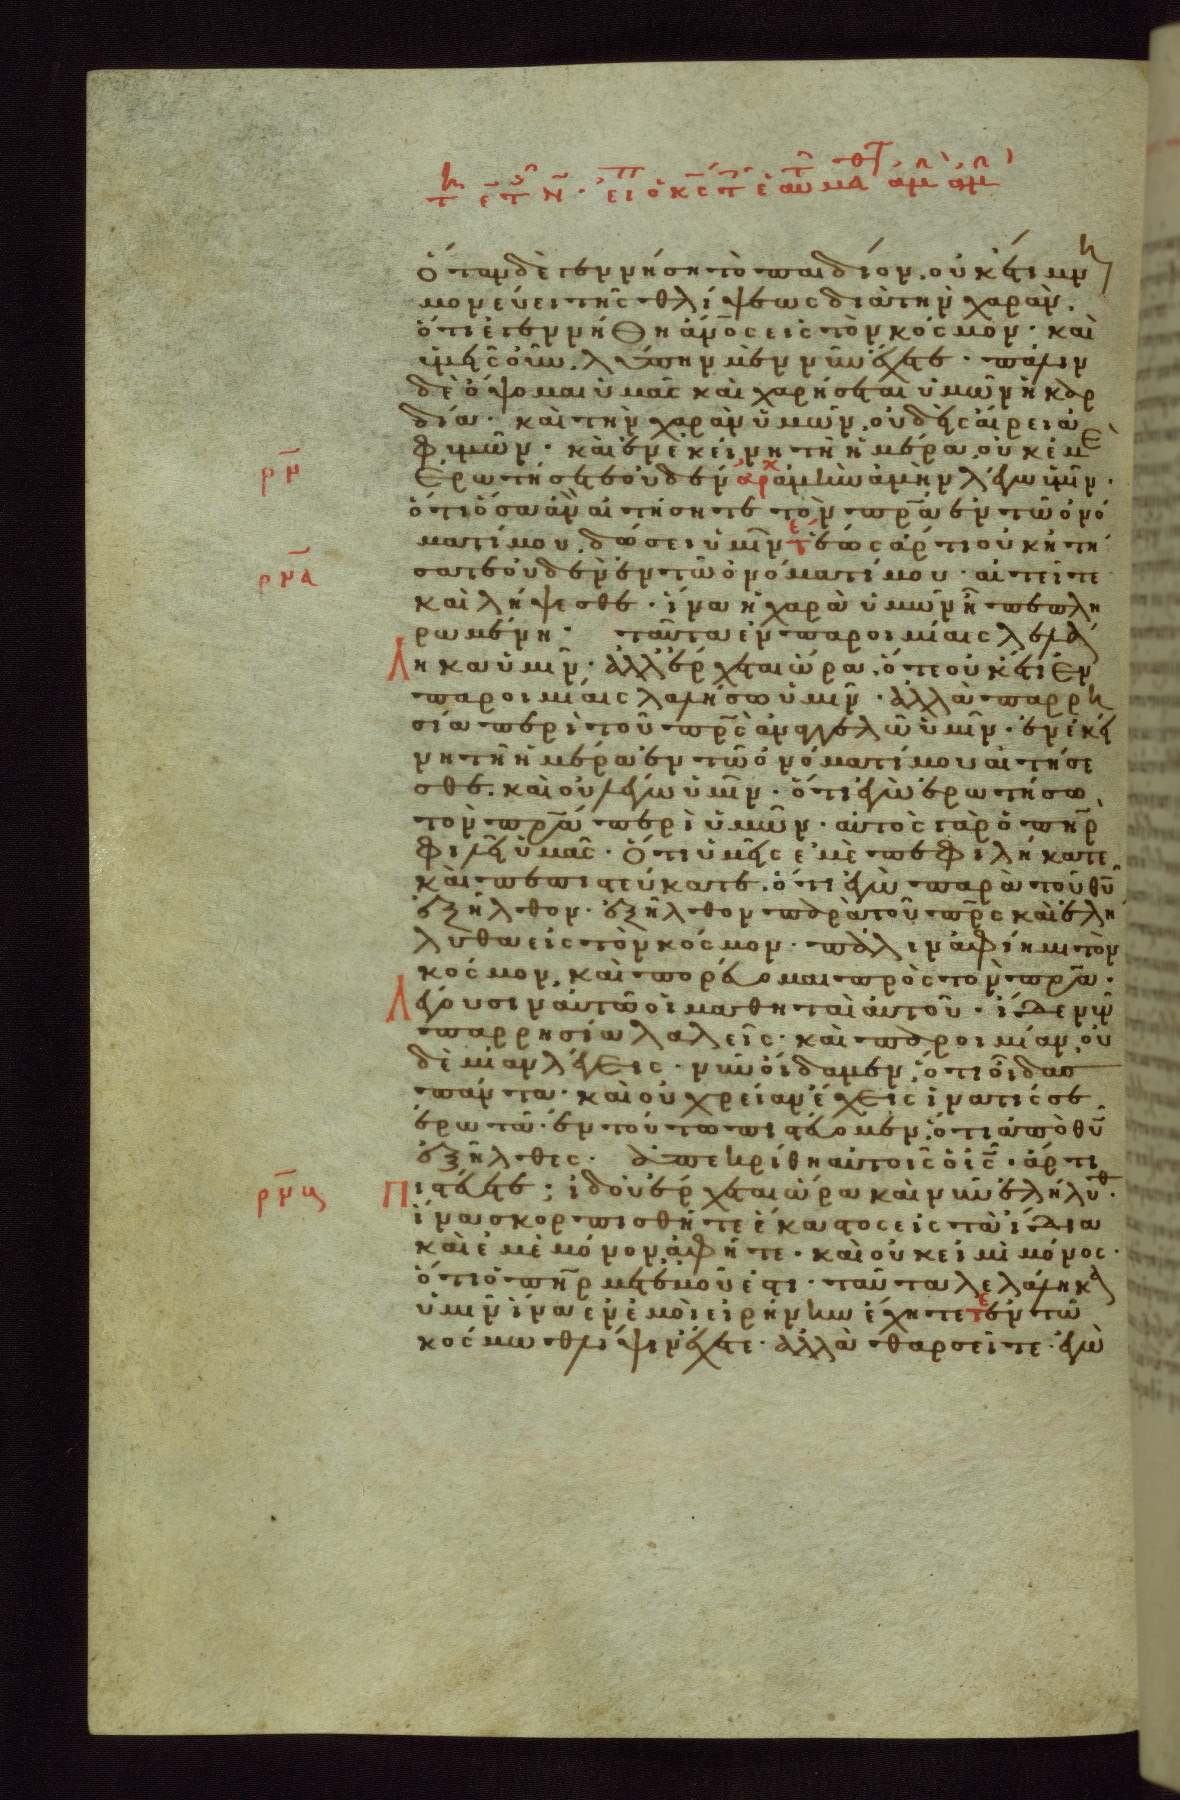 ὅταν δὲ γεννήση τὸ παιδίον, οὐκέτι μνη
μονεύει τῆς θλίψεως διὰ τὴν χαρὰν,
ὅτι ἐγεννήθη ἄνος εἰς τὸν κόσμον· καὶ
ὑμεῖς οὖν, λύπην μὲν νῦν ἔχετε· πάλιν
δὲ ὄψομαι ὑμᾶς καὶ χαρήσεται ὑμῶν ἡ καρ
δία· καὶ τὴν χαρὰν ὑμῶν, οὐδεὶς αἴρει ἀ
φ ὑμῶν· καὶ ἐν ἐκείνη τῆ ἡμέρα, οὐκ ἐμὲ
ρν ἐρωτήσετε οὐδέν ἀρχ ἀμὴν ἀμὴν λέγω ὑμῖν·
ὅτι ὅσα ἂν αἰτήσητε τὸν πρα ἐν τῶ ὀνό
ματί μου, δώσει ὑμῖν τε ἕως ἄρτι οὐκ ἠτή
ρνα σατε οὐδὲν ἐν τῶ ὀνόματί μου· αἰτεῖτε
καὶ λήψεσθε· ἵνα ἡ χαρὰ ὑμῶν ἦ πεπλη
ρωμένη· ταῦτα ἐν παροιμίαις λελά
ληκα ὑμῖν· ἀλλ ἔρχεται ὥρα, ὅτε οὐκέτι ἐν
παροιμίαις λαλήσω ὑμῖν· ἀλλὰ παρρη
σία περὶ τοῦ πρς ἀναγγελῶ ὑμῖν· ἐν ἐκεί
νη τῆ ἡμέρα ἐν τῶ ὀνόματί μου αἰτήσε
σθε. καὶ οὐ λέγω ὑμῖν· ὅτι ἐγὼ ἐρωτήσω
τὸν πρα περὶ ὑμῶν· αὐτὸς γὰρ ὁ πηρ
φιλεῖ ὑμᾶς· ὅτι ὑμεῖς ἐμὲ πεφιλήκατε
καὶ πεπιστεύκατε. ὅτι ἐγὼ παρὰ τοῦ θυ
ἐξῆλθον· ἐξῆλθον παρὰ τοῦ πρς καὶ ἐλή
λυθα εἰς τὸν κόσμον· πάλιν ἀφίημι τὸν
κόσμον, καὶ πορεύομαι πρὸς τὸν πρα·
λέγουσιν αὐτῶ οἱ μαθηταὶ αὐτοῦ· ἴδε νῦν
παρρησία λαλεῖς· καὶ παροιμίαν, οὐ
δὲ μίαν λέγεις· νῦν οἴδαμεν, ὅτι οἶδας
πάντα· καὶ οὐ χρείαν ἔχεις ἵνα τίς σε
ἐρωτᾶ· ἐν τούτω πιστεύομεν, ὅτι ἀπὸ θυ
ἐξῆλθες· ἀπεκρίθη αὐτοῖς ὁ ις· ἄρτι
ρνς πιστεύετε; ἰδοὺ ἔρχεται ὥρα καὶ νῦν ἐλήλυθ·
ἵνα σκορπισθῆτε ἕκαστος εἰς τὰ ἴδια
καὶ ἐμὲ μόνον ἀφῆτε· καὶ οὐκ εἰμὶ μόνος·
ὅτι ὁ πηρ μετ ἐμοῦ ἐστι· ταῦτα λελάληκα
ὑμῖν ἵνα ἐν ἐμοὶ εἰρήνην ἔχητε τε ἐν τῶ
κόσμω θλίψιν ἔχετε· ἀλλὰ θαρσεῖτε· ἐγὼ